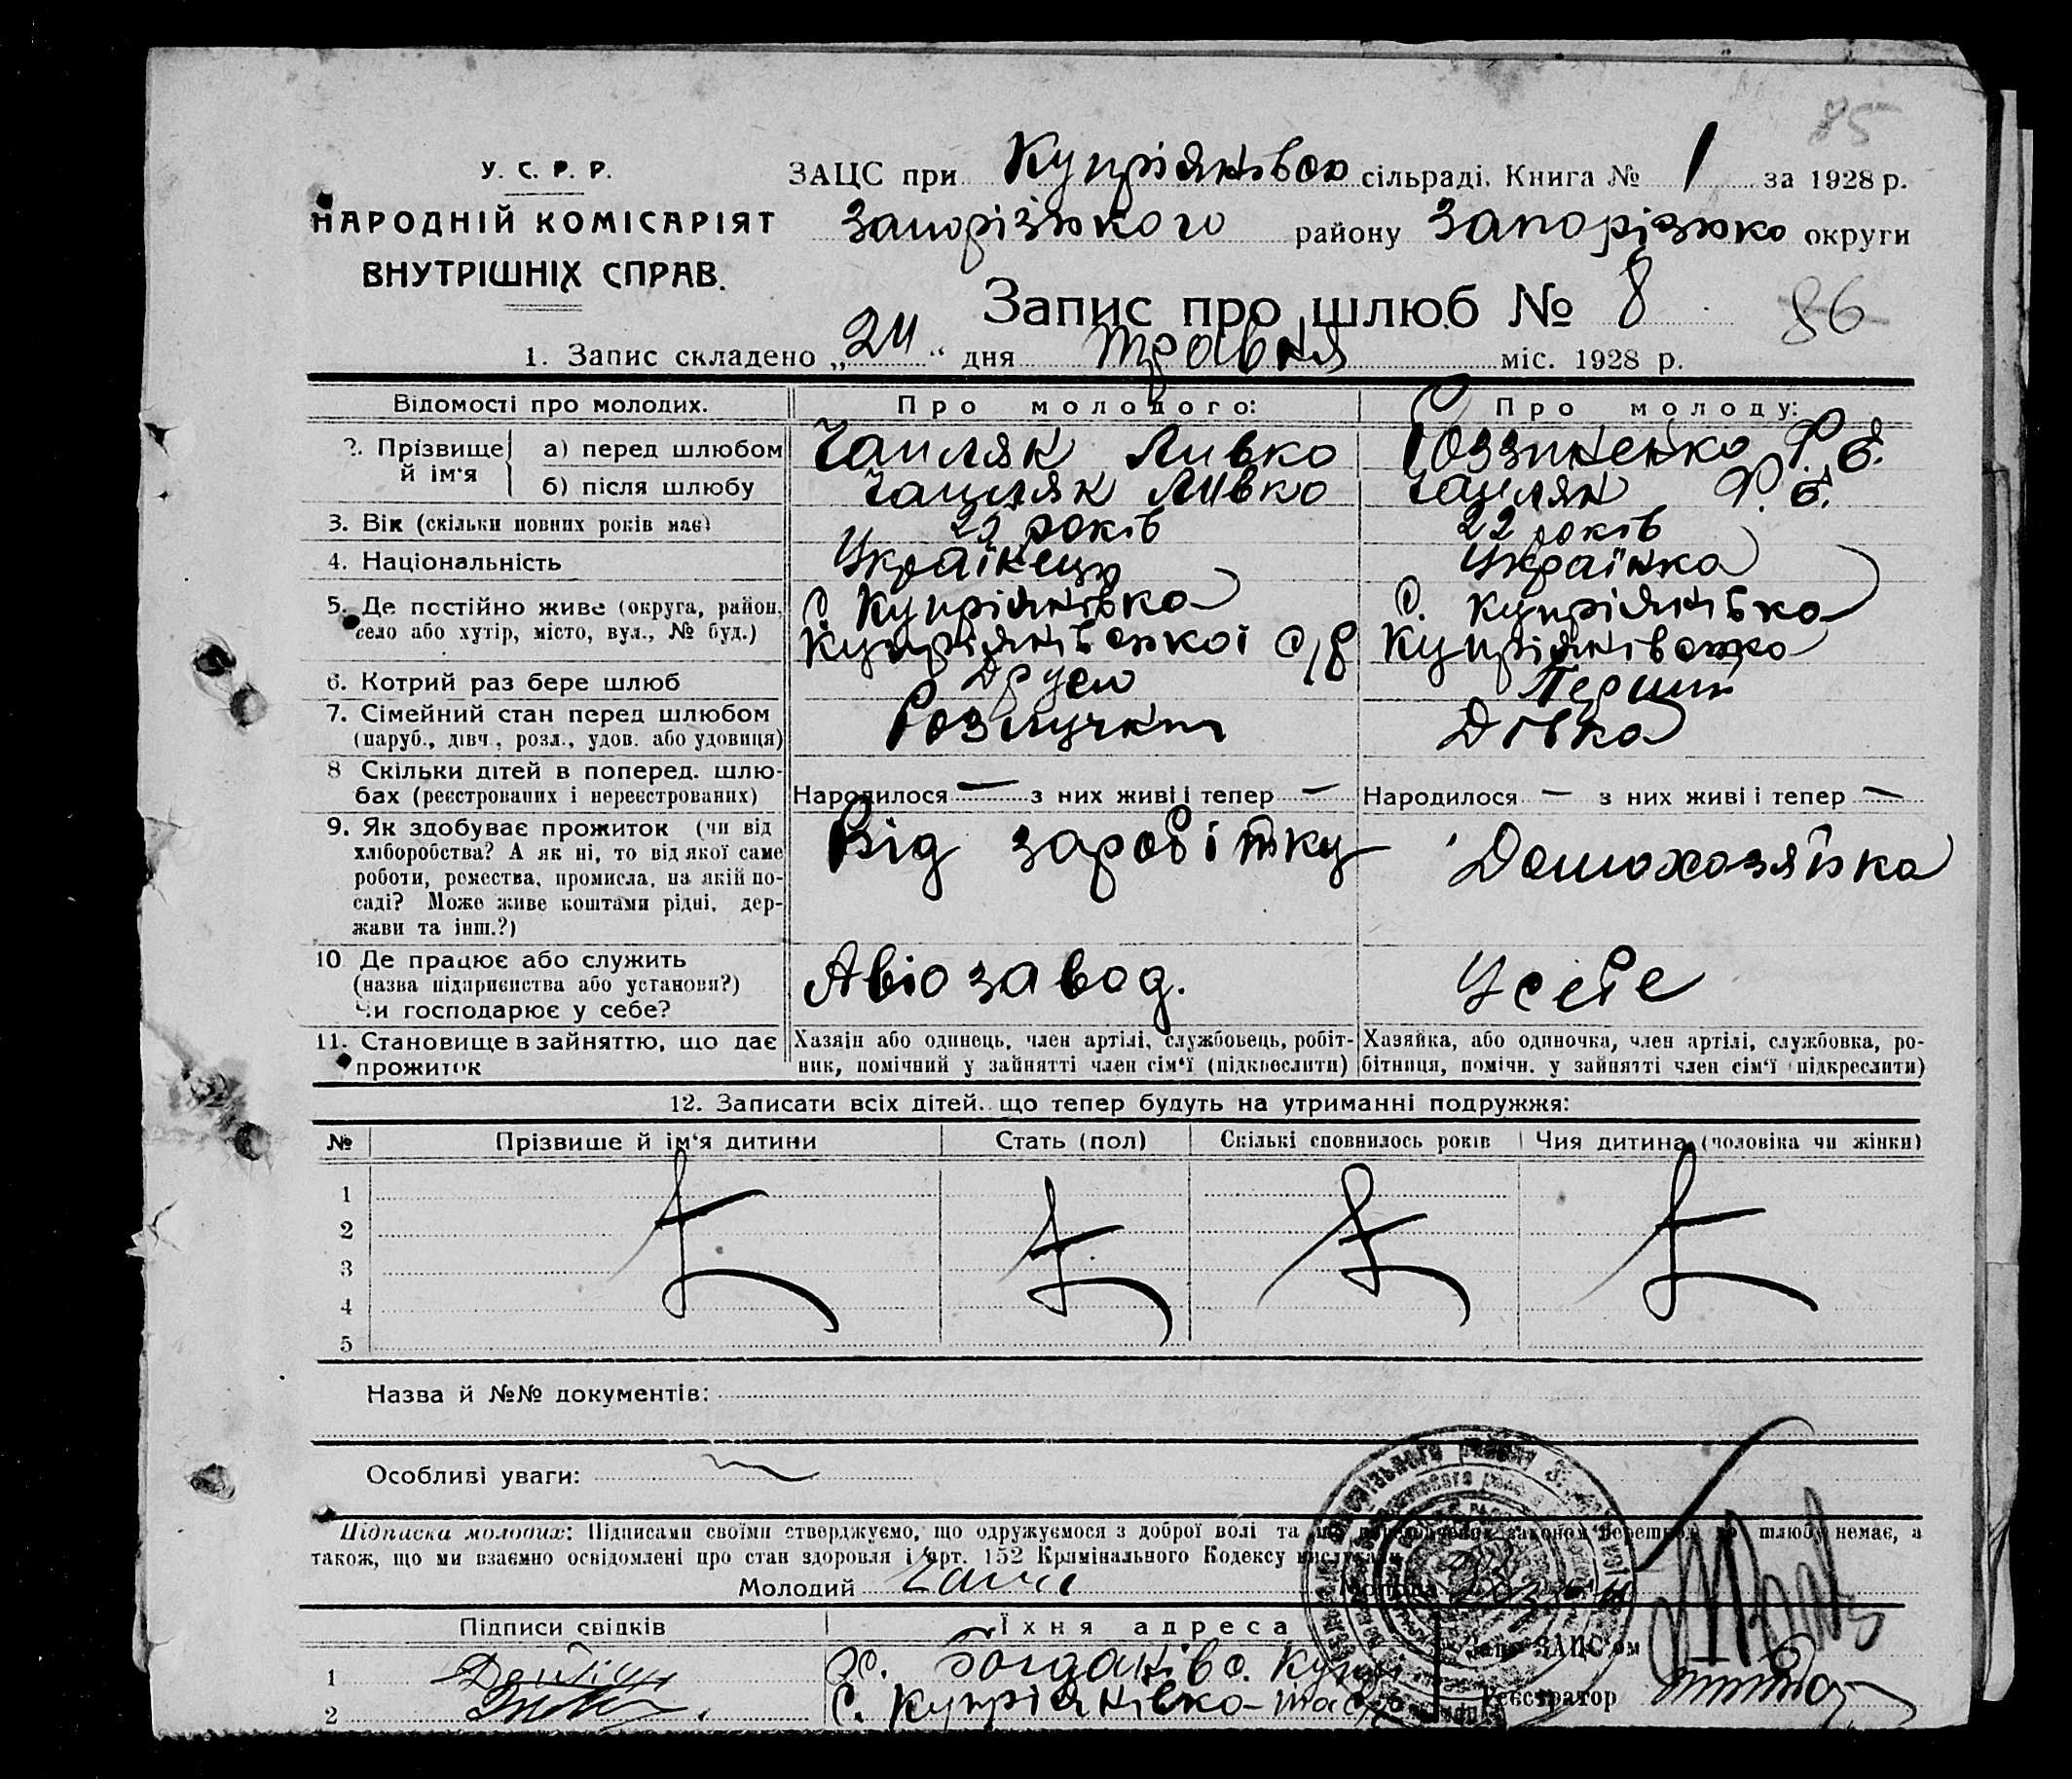 85
У. С. Р. Р.
НАРОДНІЙ КОМІСАРІЯТ
ВНУТРІШНІХ СПРАВ.
ЗАЦС при Купріянівсю сільраді. Книга № 1 за 1928 р.
Запорізького району Запорізько округи
Запис про шлюб № 8
86
1. Запис складено „24“ дня травня міс. 1928 р.
Відомості про молодих. Про молодого: Про молоду:
2. Прізвище й ім‘я а) перед шлюбом Чапляк Ливко Розз Ф. Є.
б) після шлюбу Чапляк Ливко Чапляк Ф. Є.
3. Вік (скільки повних років має) років 22 років
4. Національність Українець Українка
5. Де постійно живе (округа, район, с. Купріянівка с. Купріянівка
село або хутір, місто, вул., № буд.) Купріянівської с/р Купріянівсько
6. Котрий раз бере шлюб Другий Перший
7. Сімейний стан перед шлюбом Розлучкит Дівка
(паруб., дівч., розл., удов. або удовиця)
8 Скільки дітей в поперед. шлю-
бах (реєстрованих і нереєстрованих) Народилося — з них живі і тепер — Народилося — з них живі і тепер —
9. Як здобуває прожиток (чи від Від заробітку Домохозяйка
хліборобства? А як ні, то від якої саме
роботи, ремества, промисла, на якій по-
саді? Може живе коштами рідні, дер-
жави та інш.?)
10 Де працює або служить Авіозавод. У себе
(назва підприємства або установи?)
Чи господарює у себе?
11. Становище в зайняттю, що дає Хазяїн або одинець, член артілі, службовець, робіт- Хазяйка, або одиночка, член артілі, службовка, ро-
прожиток ник, помічний у зайнятті член сім‘ї (підкреслити) бітниця, помічн. у зайнятті член сім‘ї (підкреслити)
12. Записати всіх дітей, що тепер будуть на утриманні подружжя:
№ Прізвище й ім‘я дитини Стать (пол) Скількі сповнилось років Чия дитина (чоловіка чи жінки)
1
2
3
4
5
Назва й №№ документів:
Особливі уваги:
Підписка молодих: Підписами своїми стверджуємо, що одружуємося з доброї волі та шлюбу немає, а
також, що ми взаємно освідомлені про стан здоровля і арт. 152 Кримінального Кодексу вислухали
Молодий Чапл Молода
Підписи свідків Їхня адреса
Зав. ЗАЦС‘ом
1
2 с. Купріянівка
Реєстратор